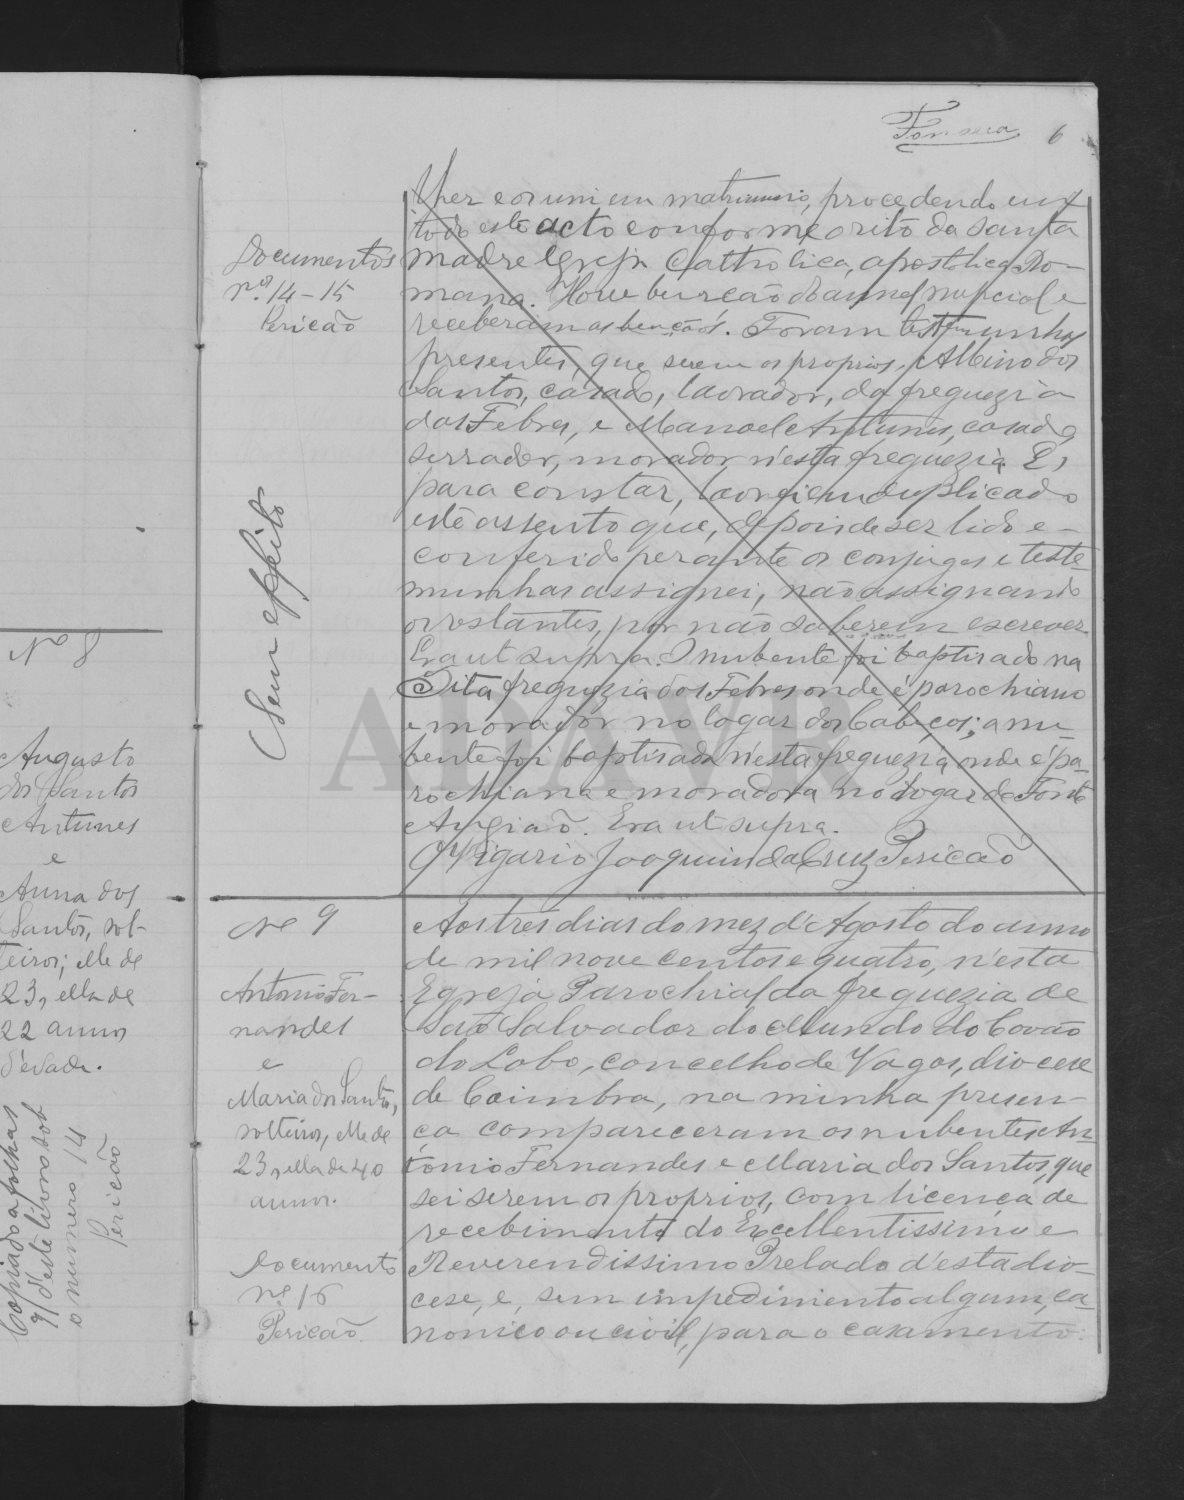 Fonseca 6
lher e os uni em matrimonio, procedendo em
todo este acto conforme o rito da Santa
Madre Egreja Catholica, apostolica Ro-
mana. Houve bencão do annel nupcial e
receberam as bencãos. Foram testemunhas
presentes, que serem os proprios, Albino dos
Santos, casado, lavrador, da freguezia
das Febres, e Manoel Antunes, casado,
serrador, morador n'esta freguezia. E,
para constar, lavrei em duplicado
este assento que, depois de ser lido e
conferido perante os conjuges e teste-
munhas assignei, não assignando
os restantes, por não saberem escrever.
Era ut supra. O nubente foi baptisado na
dita freguezia dos Febres onde é parochiano
e morador no logar dos Cabecos; a nu-
bente foi baptisada n'esta freguezia onde é pa-
rochiana e moradora no logar de Fonte
Angião. Era ut supra.
O Vigario Joaquim da Cruz Pericão
Documentos
nos 14-15
Pericão
Sem effeito
No 9
Antonio Fer-
nandes
e
Maria dos Santos,
solteiros, elle de
23, ella de 40
annos.
Documento
no 16
Pericão
Aos tres dias do mez d'Agosto do anno
de mil nove centos e quatro, n'esta
Egreja Parochial da freguezia de
São Salvador do Mundo do Covão
do Lobo, concelho de Vagos, diocese
de Coimbra, na minha presen-
ca compareceram os nubentes An-
tonio Fernandes e Maria dos Santos, que
sei serem os proprios, com licença de
recebimento do Excellentissimo e
Reverendissimo Prelado d'esta dio-
cese, e, sem impedimento algum, ca-
nonico ou civil, para o casamento:
No 8
Augusto
dos Santos
Antunes
e
Anna dos
Santos, sol-
teiros; elle de
23, ella de
22 annos
d'edade.
Copiado a folhas
9/ d'este livro sob
o numero 14
Pericão
APAVR